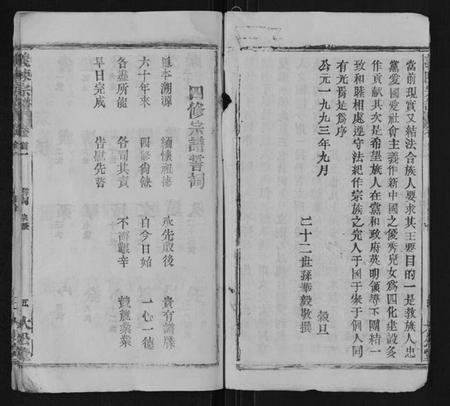 當前現實又結法合族人要求其主要目的一是教族人忠
黨愛國愛社會主義作新中國之優秀兒女為四化建設多
作貢献其次是希望族人在黨和政府英明領導下團結一
致和睦相處遵守法紀作宗族之完人于國于家于個人同
有光焉是為序
公元一九九三年九月 穀旦
二十二世孫華毅敬撰
四修宗譜誓詞
追本溯源 緬懷祖德 承先啟後 貴有譜牒
六十年來 四修尚缺 自今日始 一心一德
各盡所能 各司其責 不辭艱辛 兢兢業業
早日完成 告慰先哲
宗譜
五